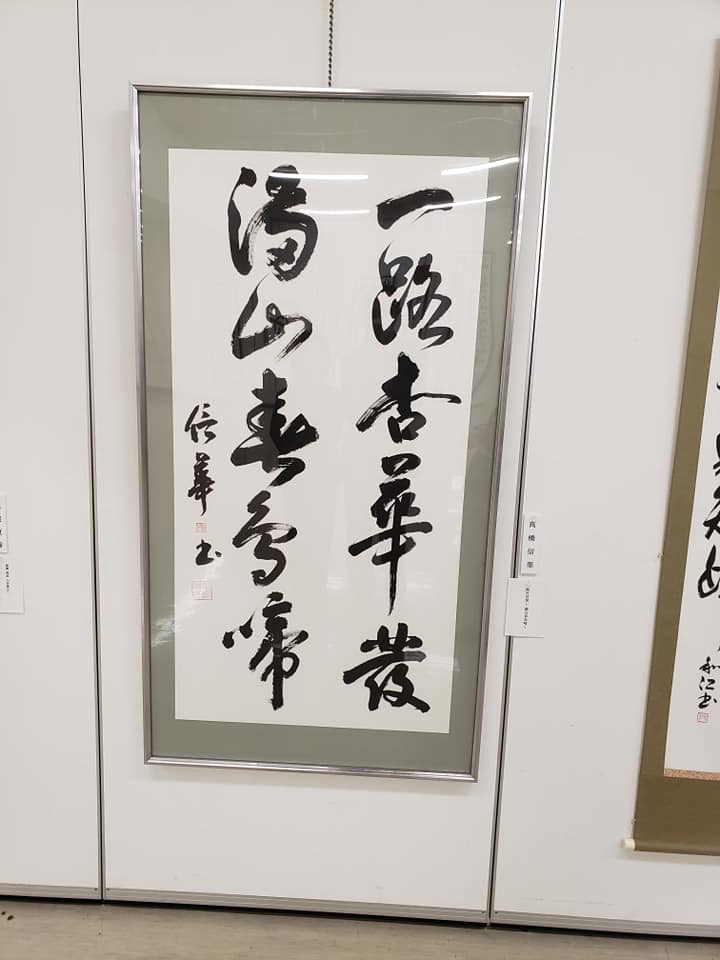 一路杏華發
滿山春鳥啼
信華書
髙橋信華
和江書